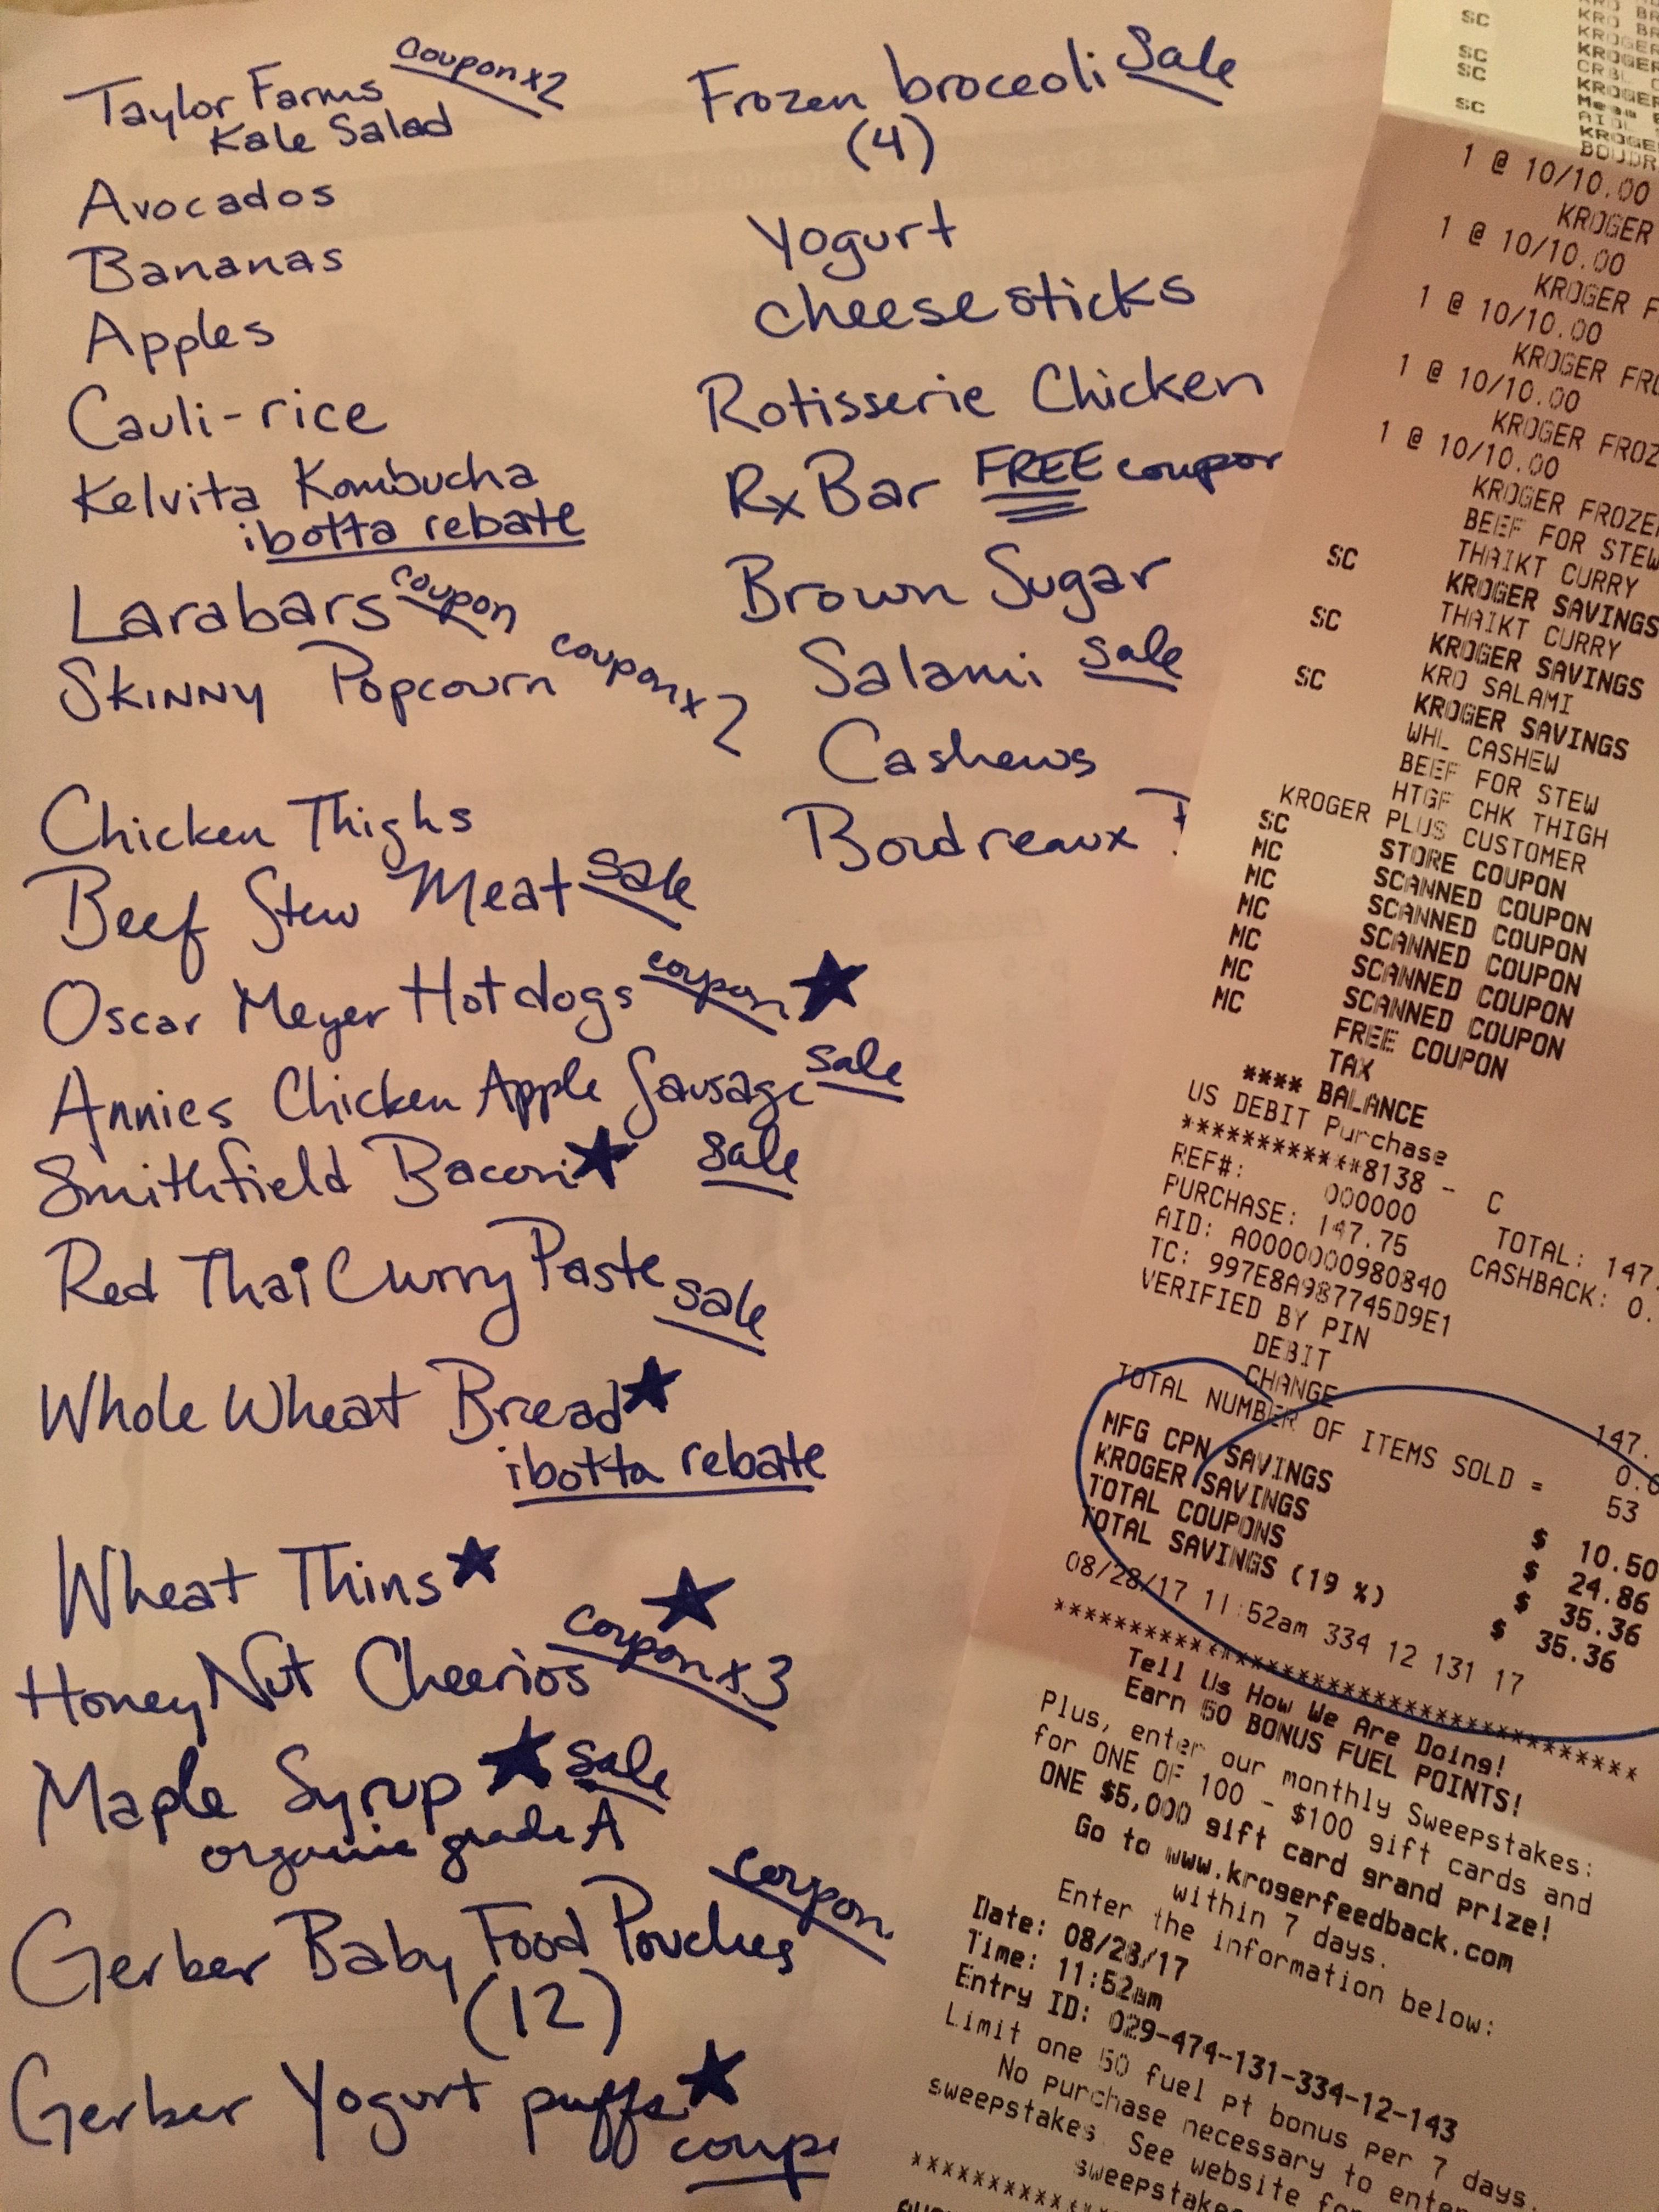 Taylor Farms coupon x2
Kale Salad
Avocados
Bananas
Apples
Cauli-rice
Kelvita Kombucha
ibotta rebate
Larabars coupon
Skinny Popcourn coupon x2
Chicken Thighs
Beef Stew Meat sale
Oscar Meyer Hotdogs coupon
Annies Chicken Apple Sausage sale
Smithfield Bacon sale
Red Thai Curry Paste sale
Whole Wheat Bread
ibotta rebate
Wheat Thins
Honey Nut Cheerios coupon x3
Maple Syrup sale
organic grade A
Gerber Baby Food Pouches coupon
(12)
Gerber Yogurt puffs
coup
Frozen broccoli Sale
(4)
Yogurt
cheese sticks
Rotisserie Chicken
Rx Bar FREE coupon
Brown Sugar
Salami sale
Cashews
Boudreaux
SC
KRO BR
KROGER
SC KROGER
SC
KROGER
SC
KROGE
BOUDR
1 @ 10/10.00
KROGER
1 @ 10/10.00
KROGER F
1 @ 10/10.00
KROGER FRO
1 @ 10/10.00
KROGER FROZ
1 @ 10/10.00
KROGER FROZE
BEEF FOR STEW
SC THAIKT CURRY
KROGER SAVINGS
SC THAIKT CURRY
KROGER SAVINGS
SC KRO SALAMI
KROGER SAVINGS
WHL CASHEW
BEEF FOR STEW
HTGF CHK THIGH
KROGER PLUS CUSTOMER
SC STORE COUPON
MC SCANNED COUPON
MC SCANNED COUPON
MC SCANNED COUPON
MC SCANNED COUPON
MC SCANNED COUPON
MC FREE COUPON
TAX
**** BALANCE
US DEBIT Purchase
************8138 - C
REF#: 000000 TOTAL: 147.
PURCHASE: 147.75 CASHBACK: 0.
AID: A0000000980840
TC: 997E8A987745D9E1
VERIFIED BY PIN
DEBIT 147.
CHANGE 0.
TOTAL NUMBER OF ITEMS SOLD = 53
MFG CPN SAVINGS $ 10.50
KROGER SAVINGS $ 24.86
TOTAL COUPONS $ 35.36
TOTAL SAVINGS (19 %) $ 35.36
08/28/17 11:52am 334 12 131 17
************************************
Tell Us How We Are Doing!
Earn 50 BONUS FUEL POINTS!
Plus, enter our monthly Sweepstakes:
for ONE OF 100 - $100 gift cards and
ONE $5,000 gift card grand prize!
Go to www.krogerfeedback.com
within 7 days.
Enter the information below:
Date: 08/28/17
Time: 11:52am
Entry ID: 029-474-131-334-12-143
Limit one 50 fuel pt bonus per 7 days.
No purchase necessary to enter
sweepstakes. See website for
sweepstakes